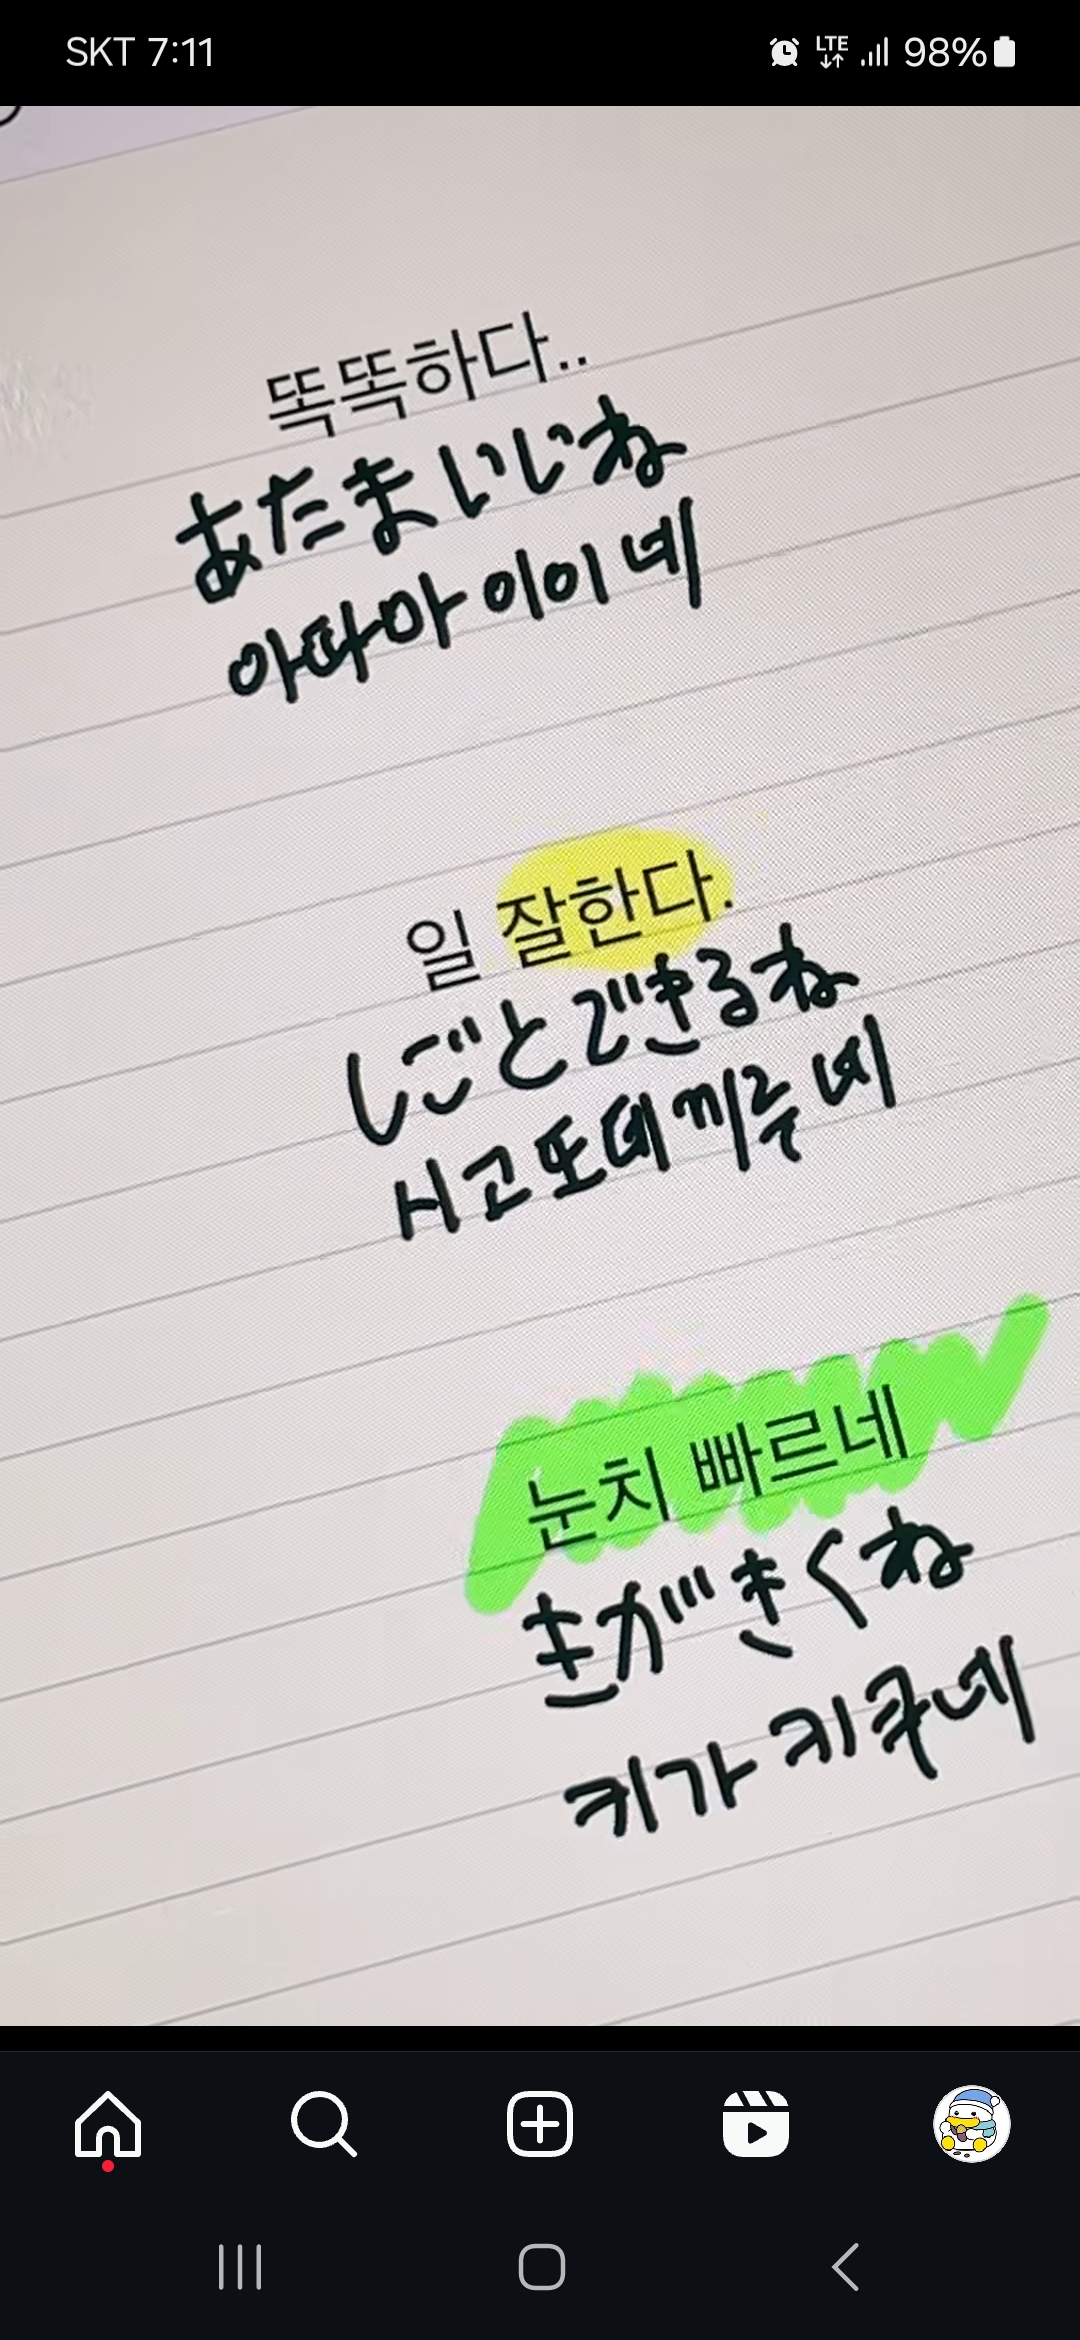 SKT 7:11
LTE 98%
똑똑하다..
あたまいいね
아따마 이이네
일 잘한다.
しごとできるね
시고또데끼루네
눈치 빠르네
きがきくね
키가 키쿠네